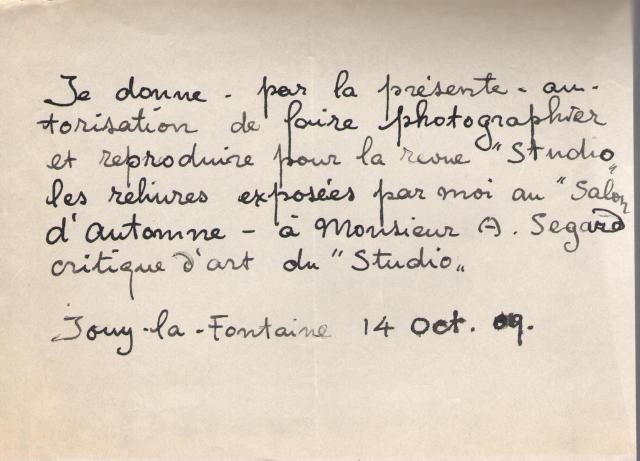 Je donne - par la présente - au-
torisation de faire photographier
et reproduire pour la revue "Studio"
les reliures exposées par moi au "Salon
d'Automne - à Monsieur A. Segard
critique d'art du "Studio„
Jouy-la-Fontaine 14 Oct. 09.